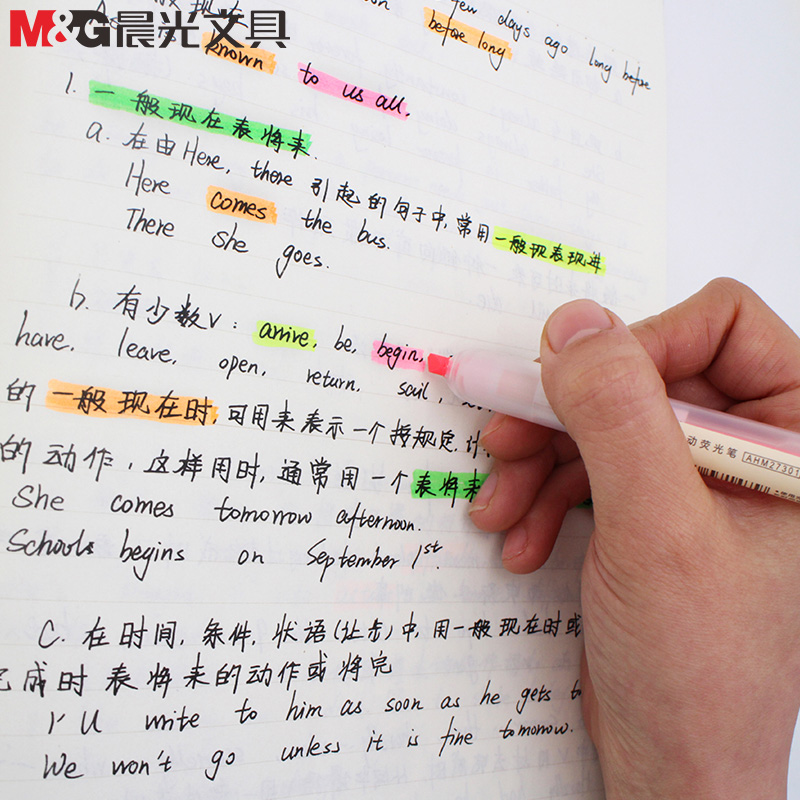 M&G晨光文具
few days ago long before
before long
known to us all.
1. 一般现在表将来.
a. 在由Here, there 引起的句子中, 常用一般现表现进
Here comes the bus.
There she goes.
b. 有少数V: arrive, be, begin,
have, leave, open, return, sail,
的一般现在时, 可用来表示一个按规定, 计
的动作, 这样用时, 通常用一个表将来
She comes tomorrow afternoon.
Schools begins on September 1st.
C. 在时间, 条件, 状语(让步)中, 用一般现在时或
完成时表将来的动作或将完
I'll write to him as soon as he gets
We won't go unless it is fine tomorrow.
动荧光笔 AHM27301